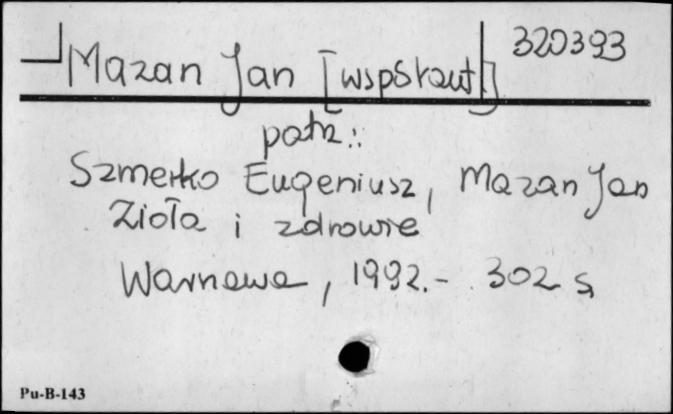 Mazan Jan [współaut] 320393
patrz:
Szmerko Eugeniusz, Mazan Jan
Zioła i zdrowie
Warszawa, 1992.- 302 s
Pu-B-143